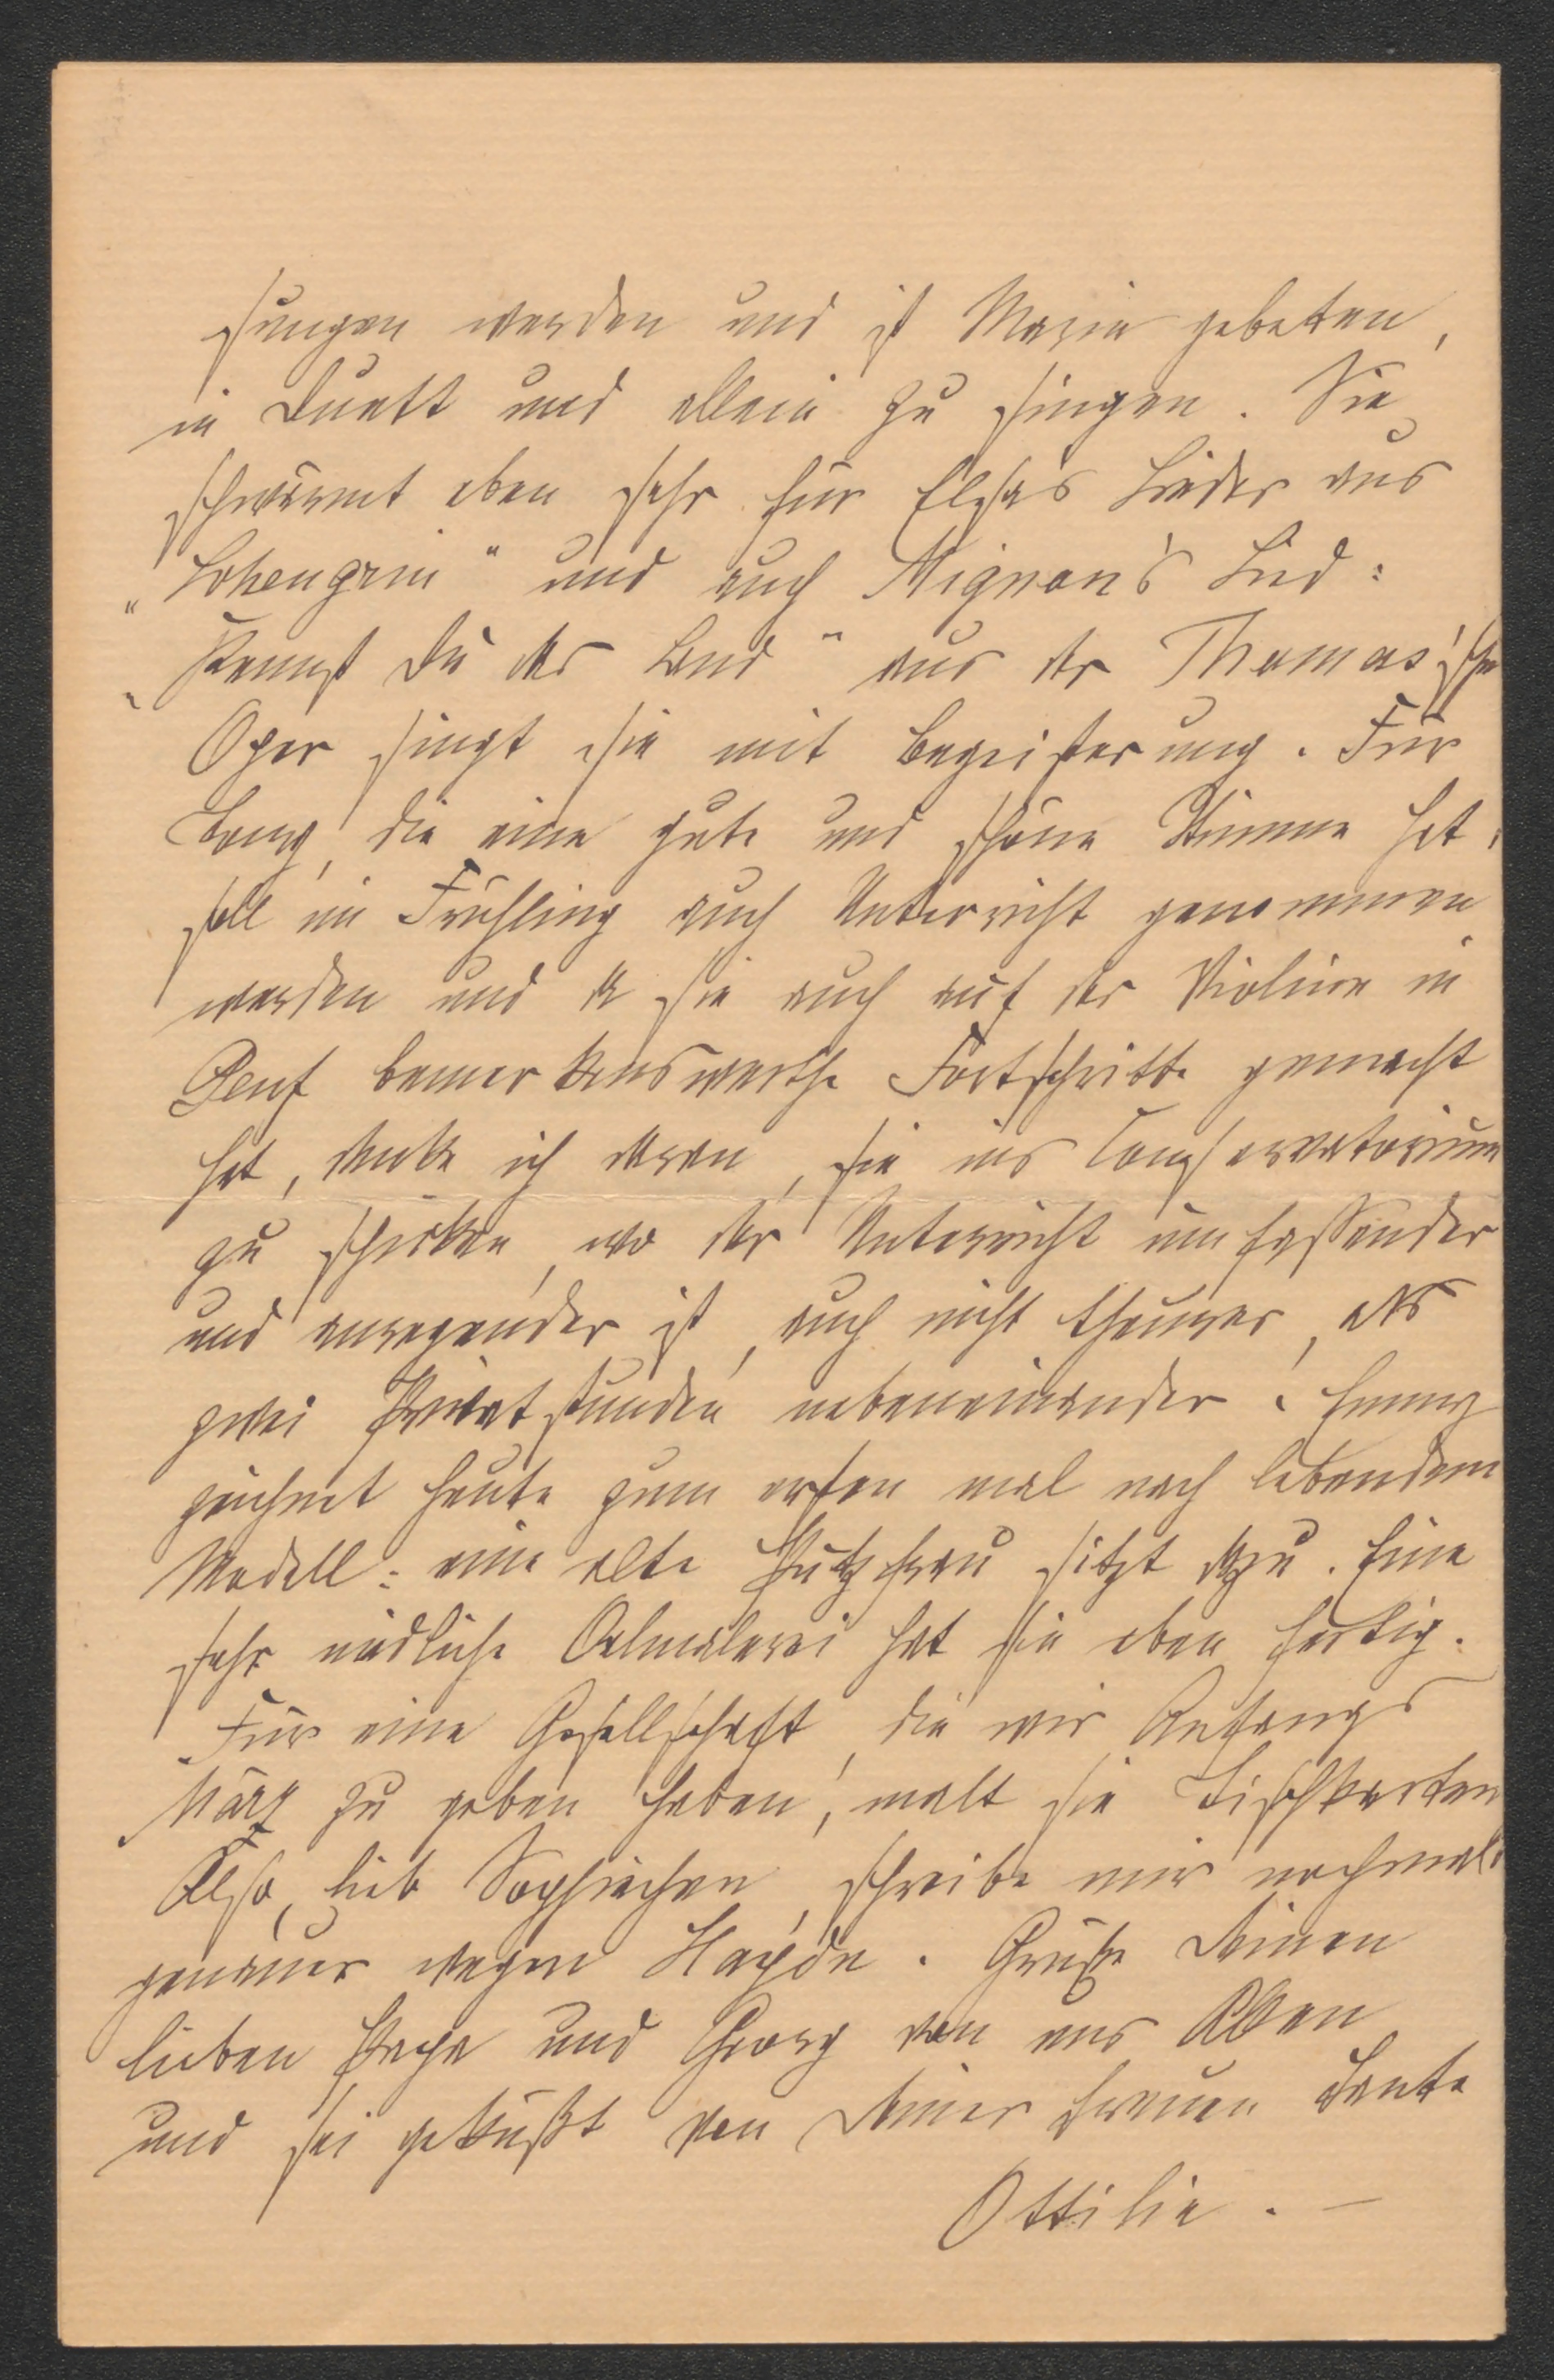 sungen werden und ist Marie gebeten,
in Duett und allein zu singen. Sie
schwärmt eben sehr für Elsas Lieder aus
„Lohengrin“ und auch Mignon's Lied:
„Kennst Du das Land“ aus der Thomas'schen
Oper singt sie mit Begeisterung. Für
die eine gute und schöne Stimme hat,
soll im Frühling auch Unterricht genommen
werden und da sie auch auf der Violine in
Genf bemerkenswerthe Fortschritte gemacht
hat, denke ich daran, sie ins Conservatorium
zu schicken, wo der Unterricht umfassender
und anregender ist, auch nicht theurer, als
zwei Privatstunden nebeneinander. Emmy
zeichnet heute zum ersten mal nach lebendem
Modell: eine alte Putzfrau sitzt dazu. Eine
sehr niedliche Oelmalerei hat sie eben fertig.
Für eine Gesellschaft, die wir Anfangs
März zu geben haben, malt sie Tischkarten.
Also, lieb Sophiechen, schreibe mir nochmals
genauer wegen Haydn. Grüße Deinen
lieben Papa und Georg von uns Allen
und sei geküßt von Deiner treuen Tante
Ottilie. —